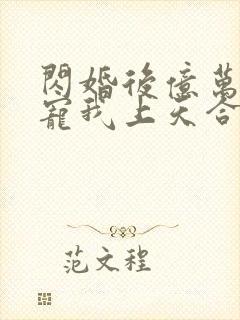 閃婚後億萬
寵我上天合
范文程